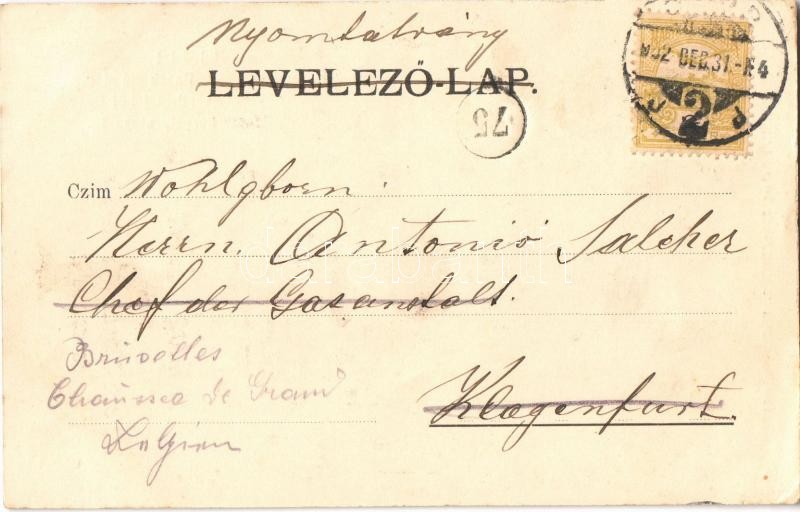 Nyomtatvány
LEVELEZŐ-LAP.
902 DEC. 31.
2
75
Czim Wohlgborn.
Herrn. Antonio Salcher
Chef der Gasanstalt.
Brüxelles
Chaussee de Grand
Belgien
Klagenfurt.
darabanth